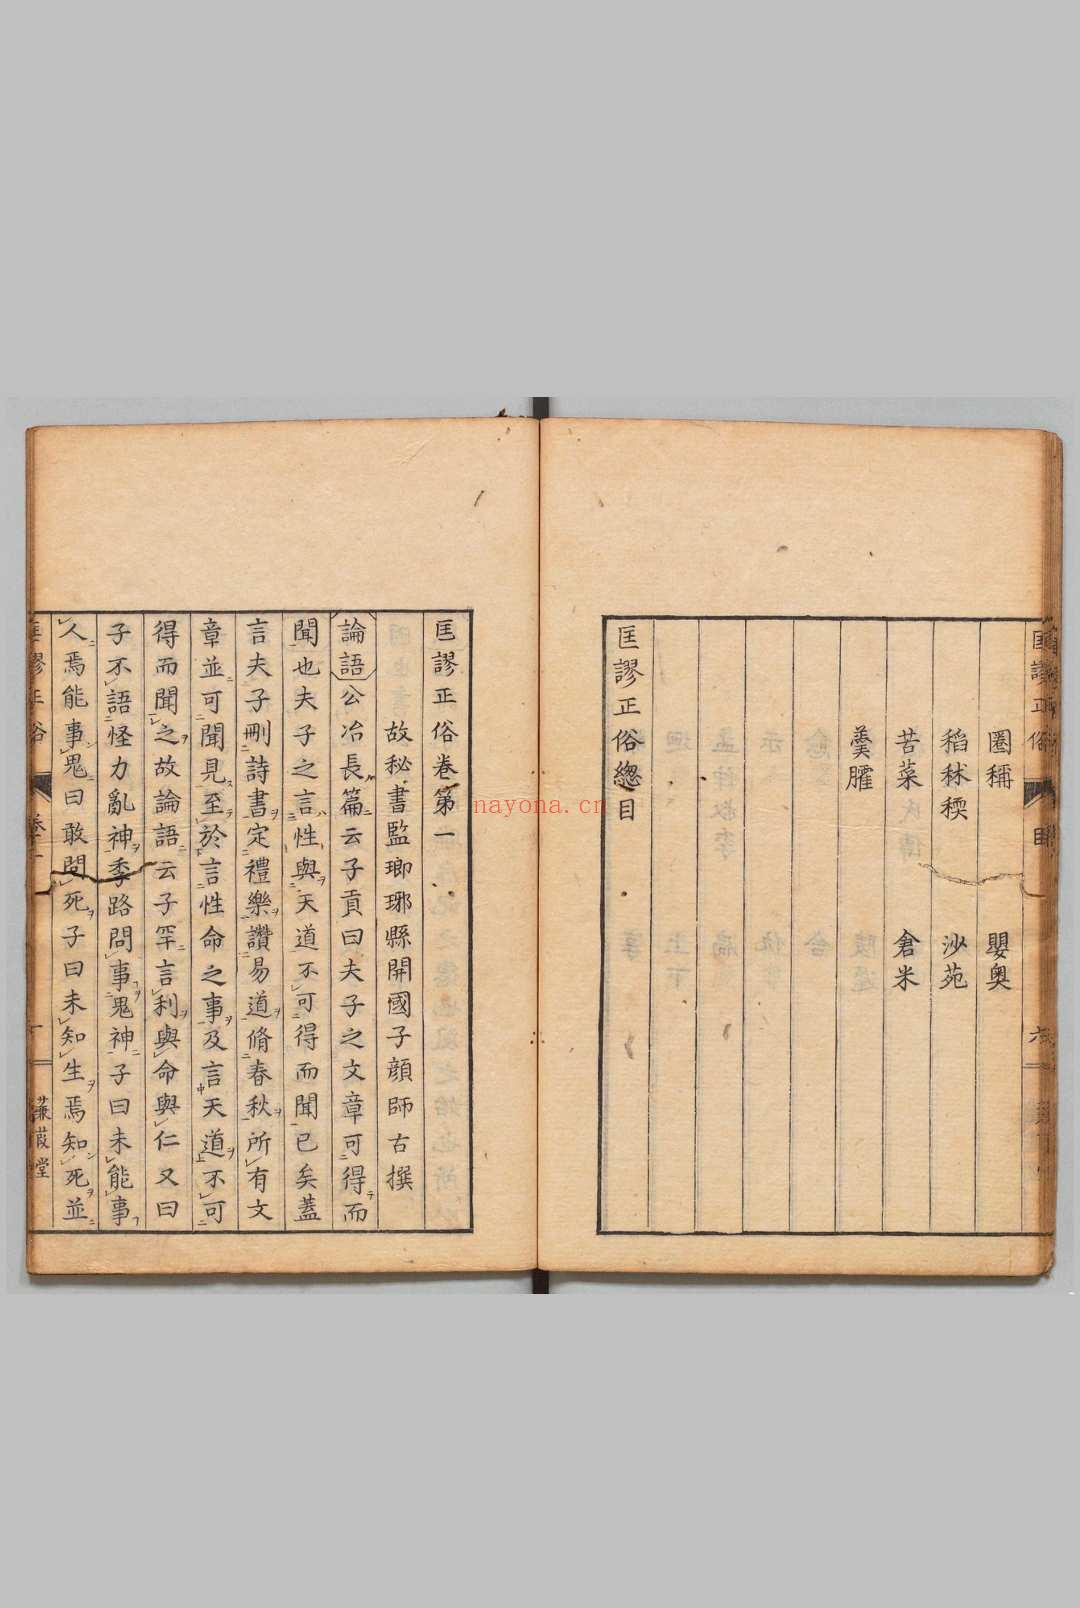 圏稱　嬰奧
稻秫稬　沙苑
苦菜　倉米
羹臛
匡謬正俗緫目
匡謬正俗卷第一
故秘書監瑯琊縣開國子顔師古撰
論語公冶長篇云子貢曰夫子之文章可得而
聞也夫子之言性與天道不可得而聞已矣蓋
言夫子刪詩書定禮樂讚易道脩春秋所有文
章並可聞見至於言性命之事及言天道不可
得而聞之故論語云子罕言利與命與仁又曰
子不語怪力亂神季路問事鬼神子曰未能事
人焉能事鬼曰敢問死子曰未知生焉知死並
蒹葭堂
nayona.cn